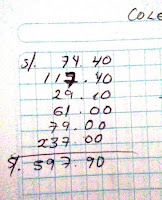 COLE
S/. 74.40
117.40
29.10
61.00
79.00
237.00
S/. 597.90